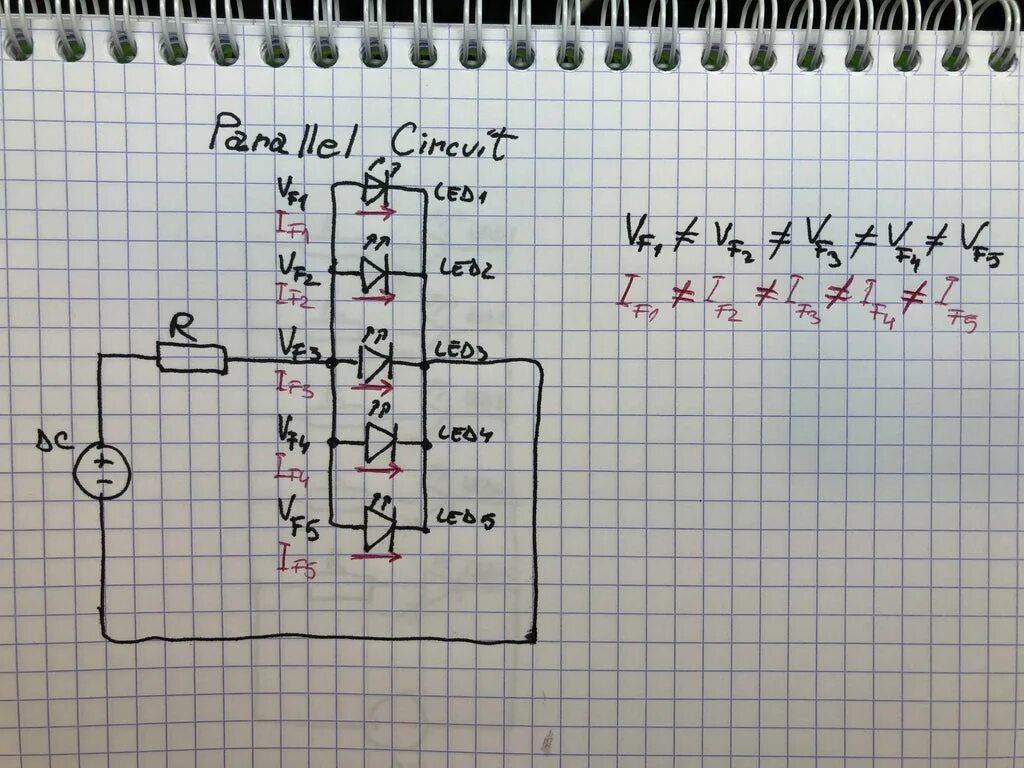 Parallel Circuit
VF1 LED1
IF1
VF2 LED2
IF2
VF3 LED3
IF3
VF4 LED4
IF4
VF5 LED5
IF5
R
DC
+
-
VF1 ≠ VF2 ≠ VF3 ≠ VF4 ≠ VF5
IF1 ≠ IF2 ≠ IF3 ≠ IF4 ≠ IF5